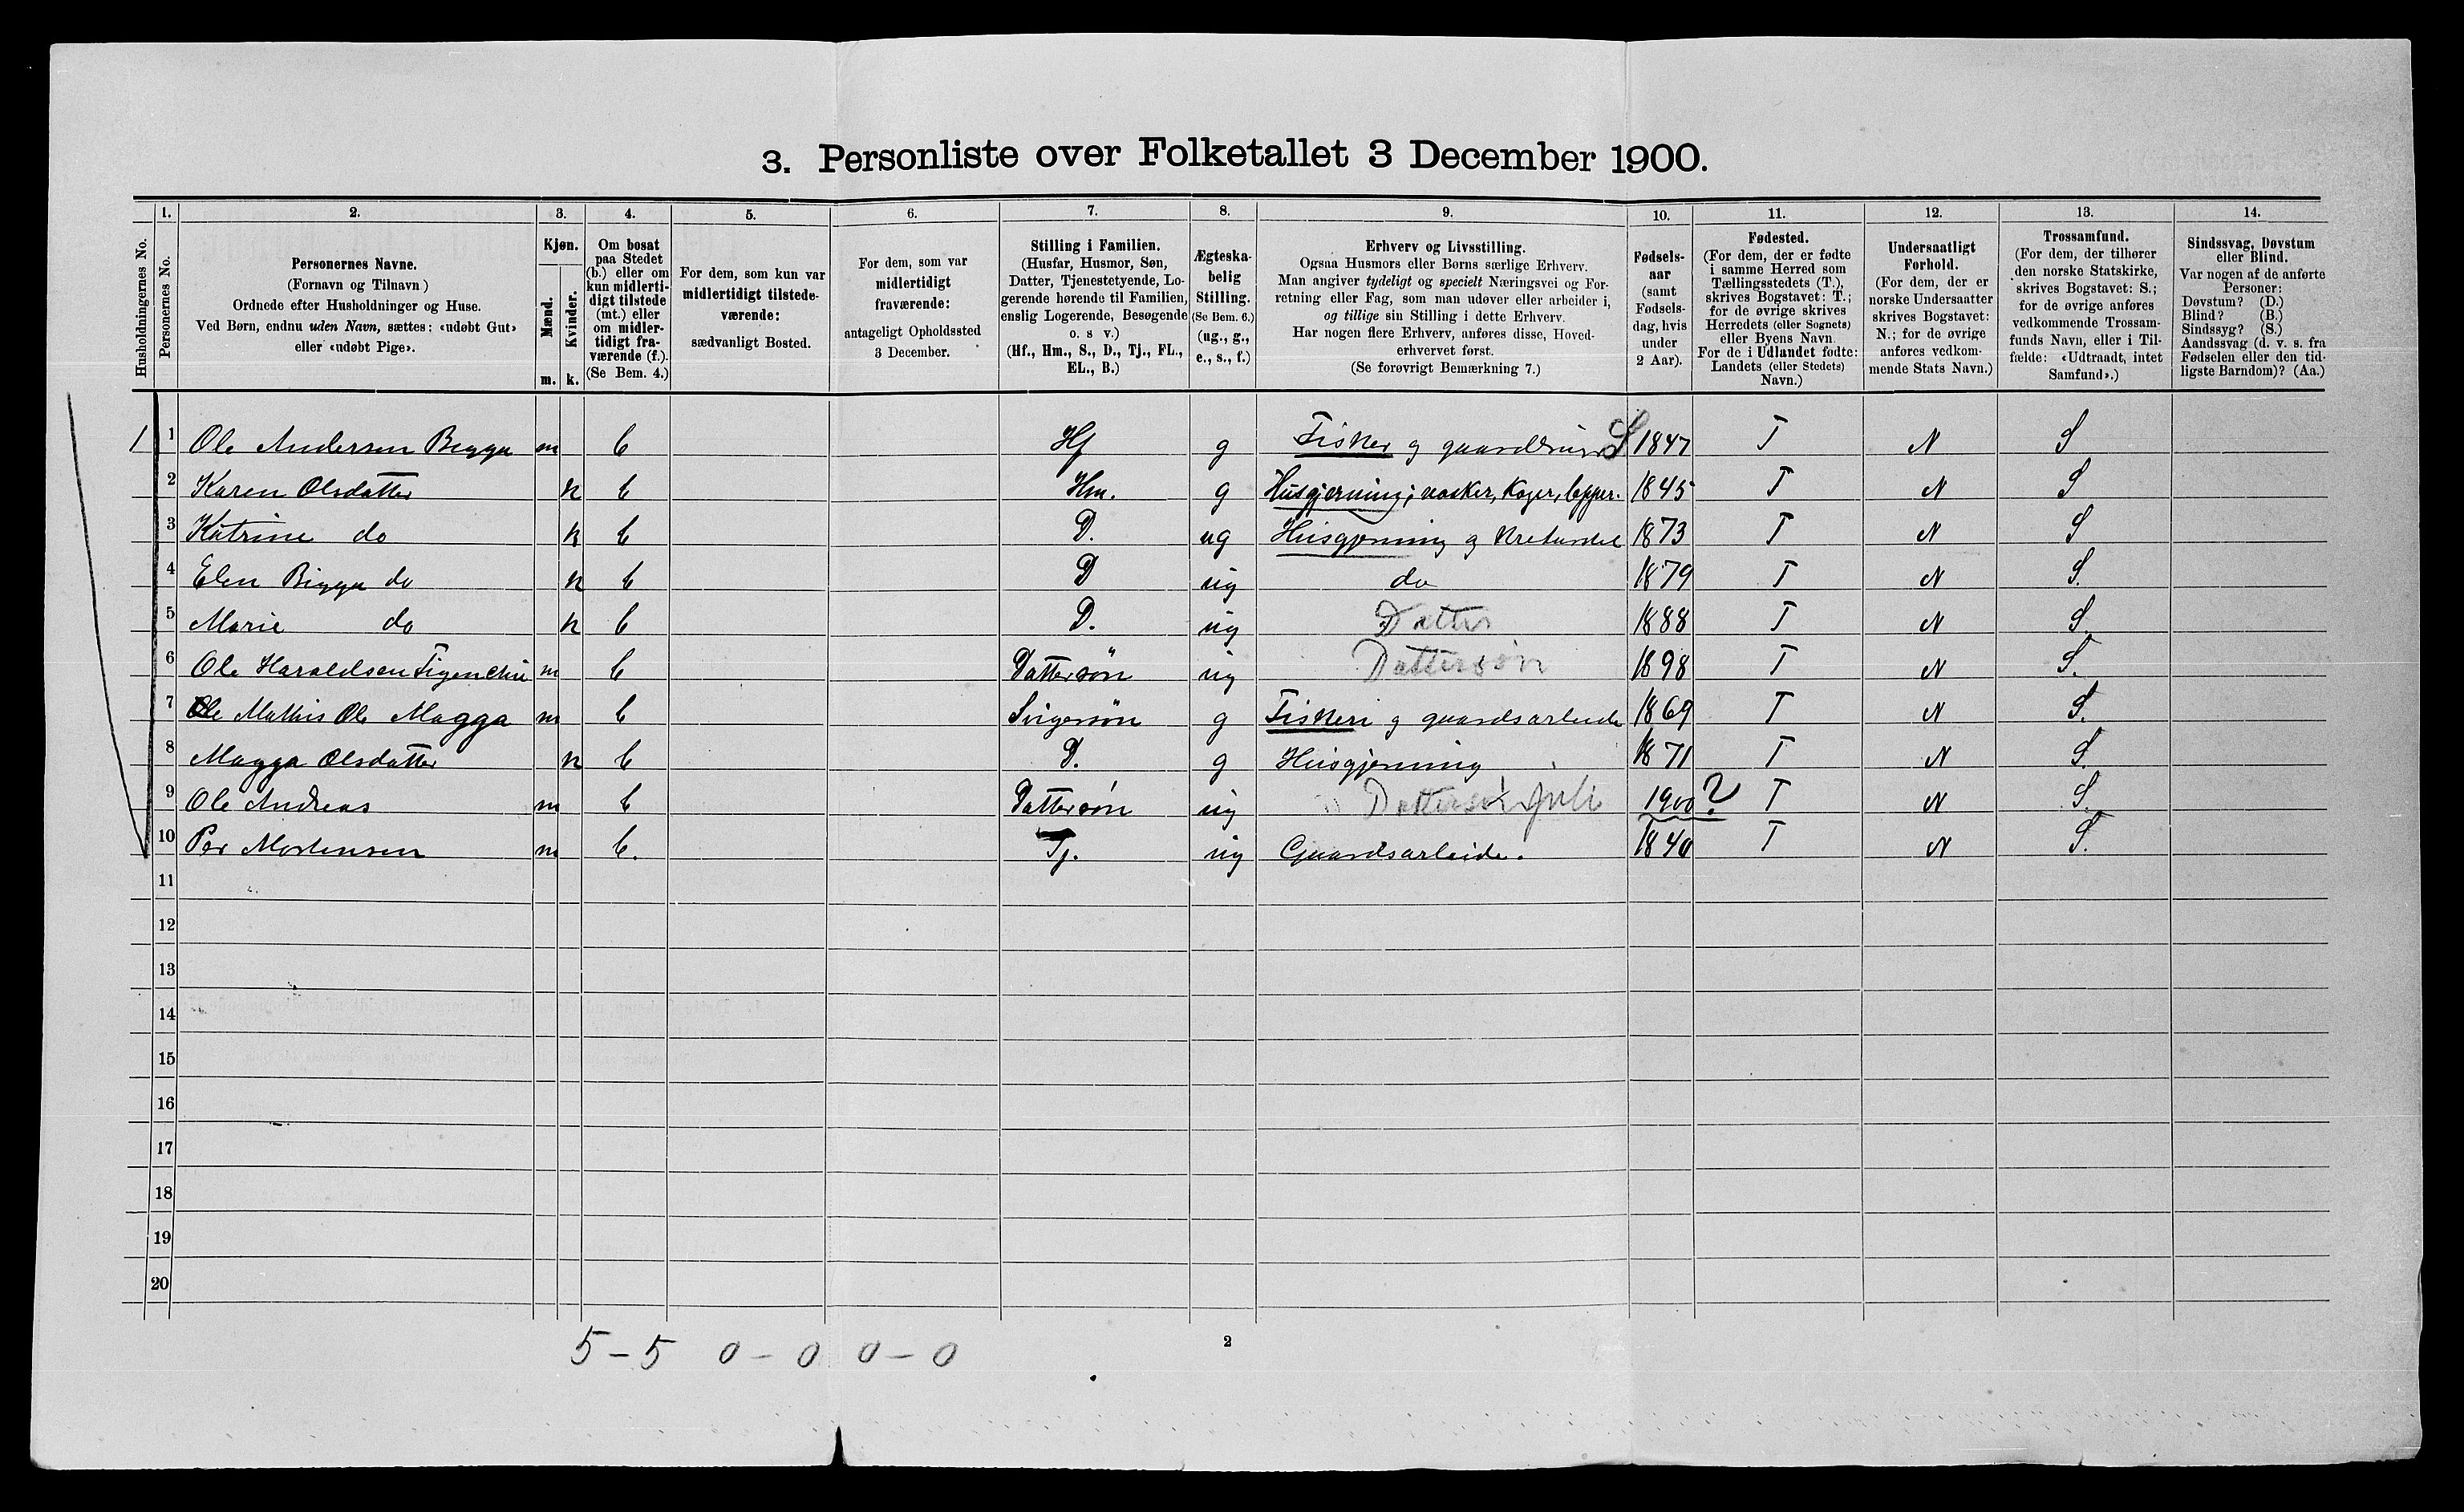 3. Personliste over Folketallet 3 December 1900.
1. 2. 3. 4. 5. 6. 7. 8. 9. 10. 11. 12. 13. 14.
Husholdningernes No.
Personernes No.
Personernes Navne.
(Fornavn og Tilnavn)
Ordnede efter Husholdninger og Huse.
Ved Børn, endnu uden Navn, sættes: «udøbt Gut»
eller «udøbt Pige».
Kjøn.
Mænd.
Kvinder.
m. k.
Om bosat
paa Stedet
(b.) eller om
kun midlerti-
digt tilstede
(mt.) eller
om midler-
tidigt fra-
værende (f.).
(Se Bem. 4.)
For dem, som kun var
midlertidigt tilstede-
værende:
sædvanligt Bosted.
For dem, som var
midlertidigt
fraværende:
antageligt Opholdssted
3 December.
Stilling i Familien.
(Husfar, Husmor, Søn,
Datter, Tjenestetyende, Lo-
gerende hørende til Familien,
enslig Logerende, Besøgende
o. s v.)
(Hf., Hm., S., D., Tj., FL.,
EL., B.)
Ægteska-
belig
Stilling.
(Se Bem. 6.)
(ug., g.,
e., s., f.)
Erhverv og Livsstilling.
Ogsaa Husmors eller Børns særlige Erhverv.
Man angiver tydeligt og specielt Næringsvei og For-
retning eller Fag, som man udøver eller arbeider i,
og tillige sin Stilling i dette Erhverv.
Har nogen flere Erhverv, anføres disse, Hoved-
erhvervet først.
(Se forøvrigt Bemærkning 7.)
Fødsels-
aar
(samt
Fødsels-
dag, hvis
under
2 Aar).
Fødested.
(For dem, der er fødte
i samme Herred som
Tællingsstedets (T.),
skrives Bogstavet: T.;
for de øvrige skrives
Herredets (eller Sognets)
eller Byens Navn.
For de i Udlandet fødte:
Landets (eller Stedets)
Navn.)
Undersaatligt
Forhold.
(For dem, der er
norske Undersaatter
skrives Bogstavet:
N.; for de øvrige
anføres vedkom-
mende Stats Navn.)
Trossamfund.
(For dem, der tilhører
den norske Statskirke,
skrives Bogstavet: S.;
for de øvrige anføres
vedkommende Trossam-
funds Navn, eller i Til-
fælde: «Udtraadt, intet
Samfund».)
Sindssvag, Døvstum
eller Blind.
Var nogen af de anførte
Personer:
Døvstum? (D.)
Blind? (B.)
Sindssyg? (S.)
Aandssvag (d. v. s. fra
Fødselen eller den tid-
ligste Barndom)? (Aa.)
1 1 Ole Andersen Bigga m b Hf g Fisker og gaardbruger S 1847 T N S
2 Karen Olsdatter k b Hm. g Husgjerning; vasker, Koger, lapper. 1845 T N S
3 Katrine do k b D. ug Husgjerning og Kretursstel 1873 T N S
4 Elen Bigga do k b D ug do 1879 T N S.
5 Marie do k b D. ug Datter 1888 T N S.
6 Ole Haraldsen m b Dattersøn ug Dattersøn 1898 T N S.
7 Ole Mathis Ols Magga m b Svigersøn g Fiskeri og gaardsarbeide 1869 T N S.
8 Magga Olsdatter k b D. g Husgjerning 1871 T N S.
9 Ole Andreas m b Dattersøn ug Dattersøn Juli 1900 ? T N S.
10 Per Mortensen m b. Tj. ug Gaardsarbeide. 1840 T N S.
11
12
13
14
15
16
17
18
19
20
5 – 5 0 – 0 0 – 0
2